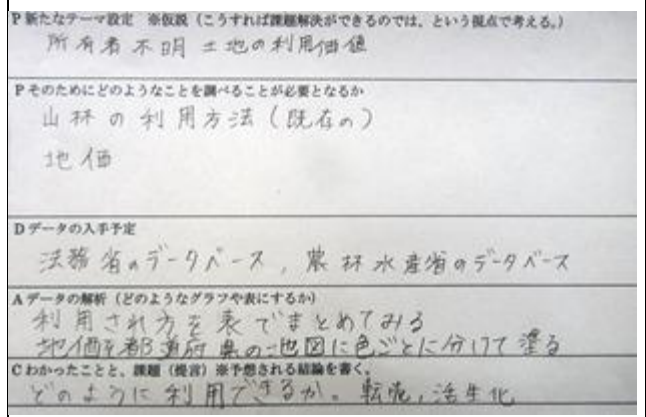 P 新たなテーマ設定 ※仮説（こうすれば課題解決ができるのでは、という視点で考える。）
所有者不明土地の利用価値
P そのためにどのようなことを調べることが必要となるか
山林の利用方法（既存の）
地価
D データの入手予定
法務省のデータベース，農林水産省のデータベース
A データの解析（どのようなグラフや表にするか）
利用され方を表でまとめてみる
地価を都道府県の地図に色ごとに分けて塗る
C わかったことと、課題（提言）※予想される結論を書く。
どのように利用できるか。転売，活生化